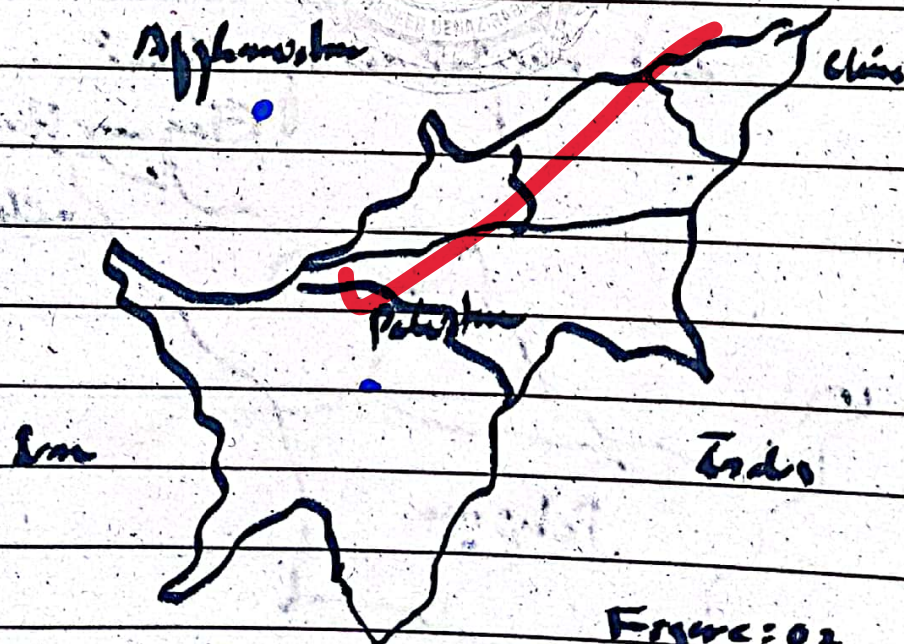 Afghanistan
China
Pakistan
Iran
India
Figure: 02